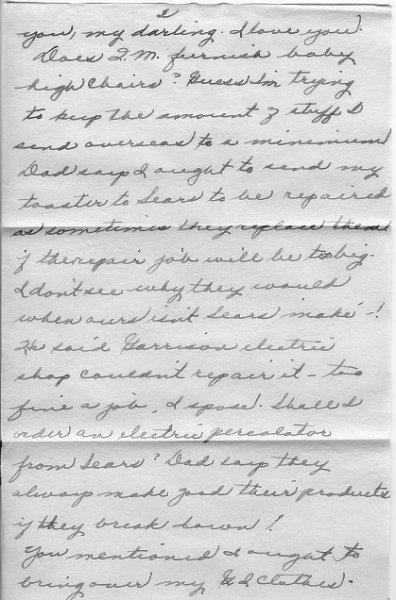 2
you, my darling. I love you!
Does Q.M. furnish baby
high chairs? Guess I'm trying
to keep the amount of stuff I
send overseas to a minimium
Dad says I ought to send my
toaster to Sears to be repaired
as sometimes they replace them
if the repair job will be to big.
I don't see why they would
when ours isn't Sears make -!
He said Garrison electric
shop couldn't repair it - too
fine a job, I spose. Shall I
order an electric percolator
from Sears? Dad says they
always make good their products
if they break down!
You mentioned I ought to
bring over my G I clothes.